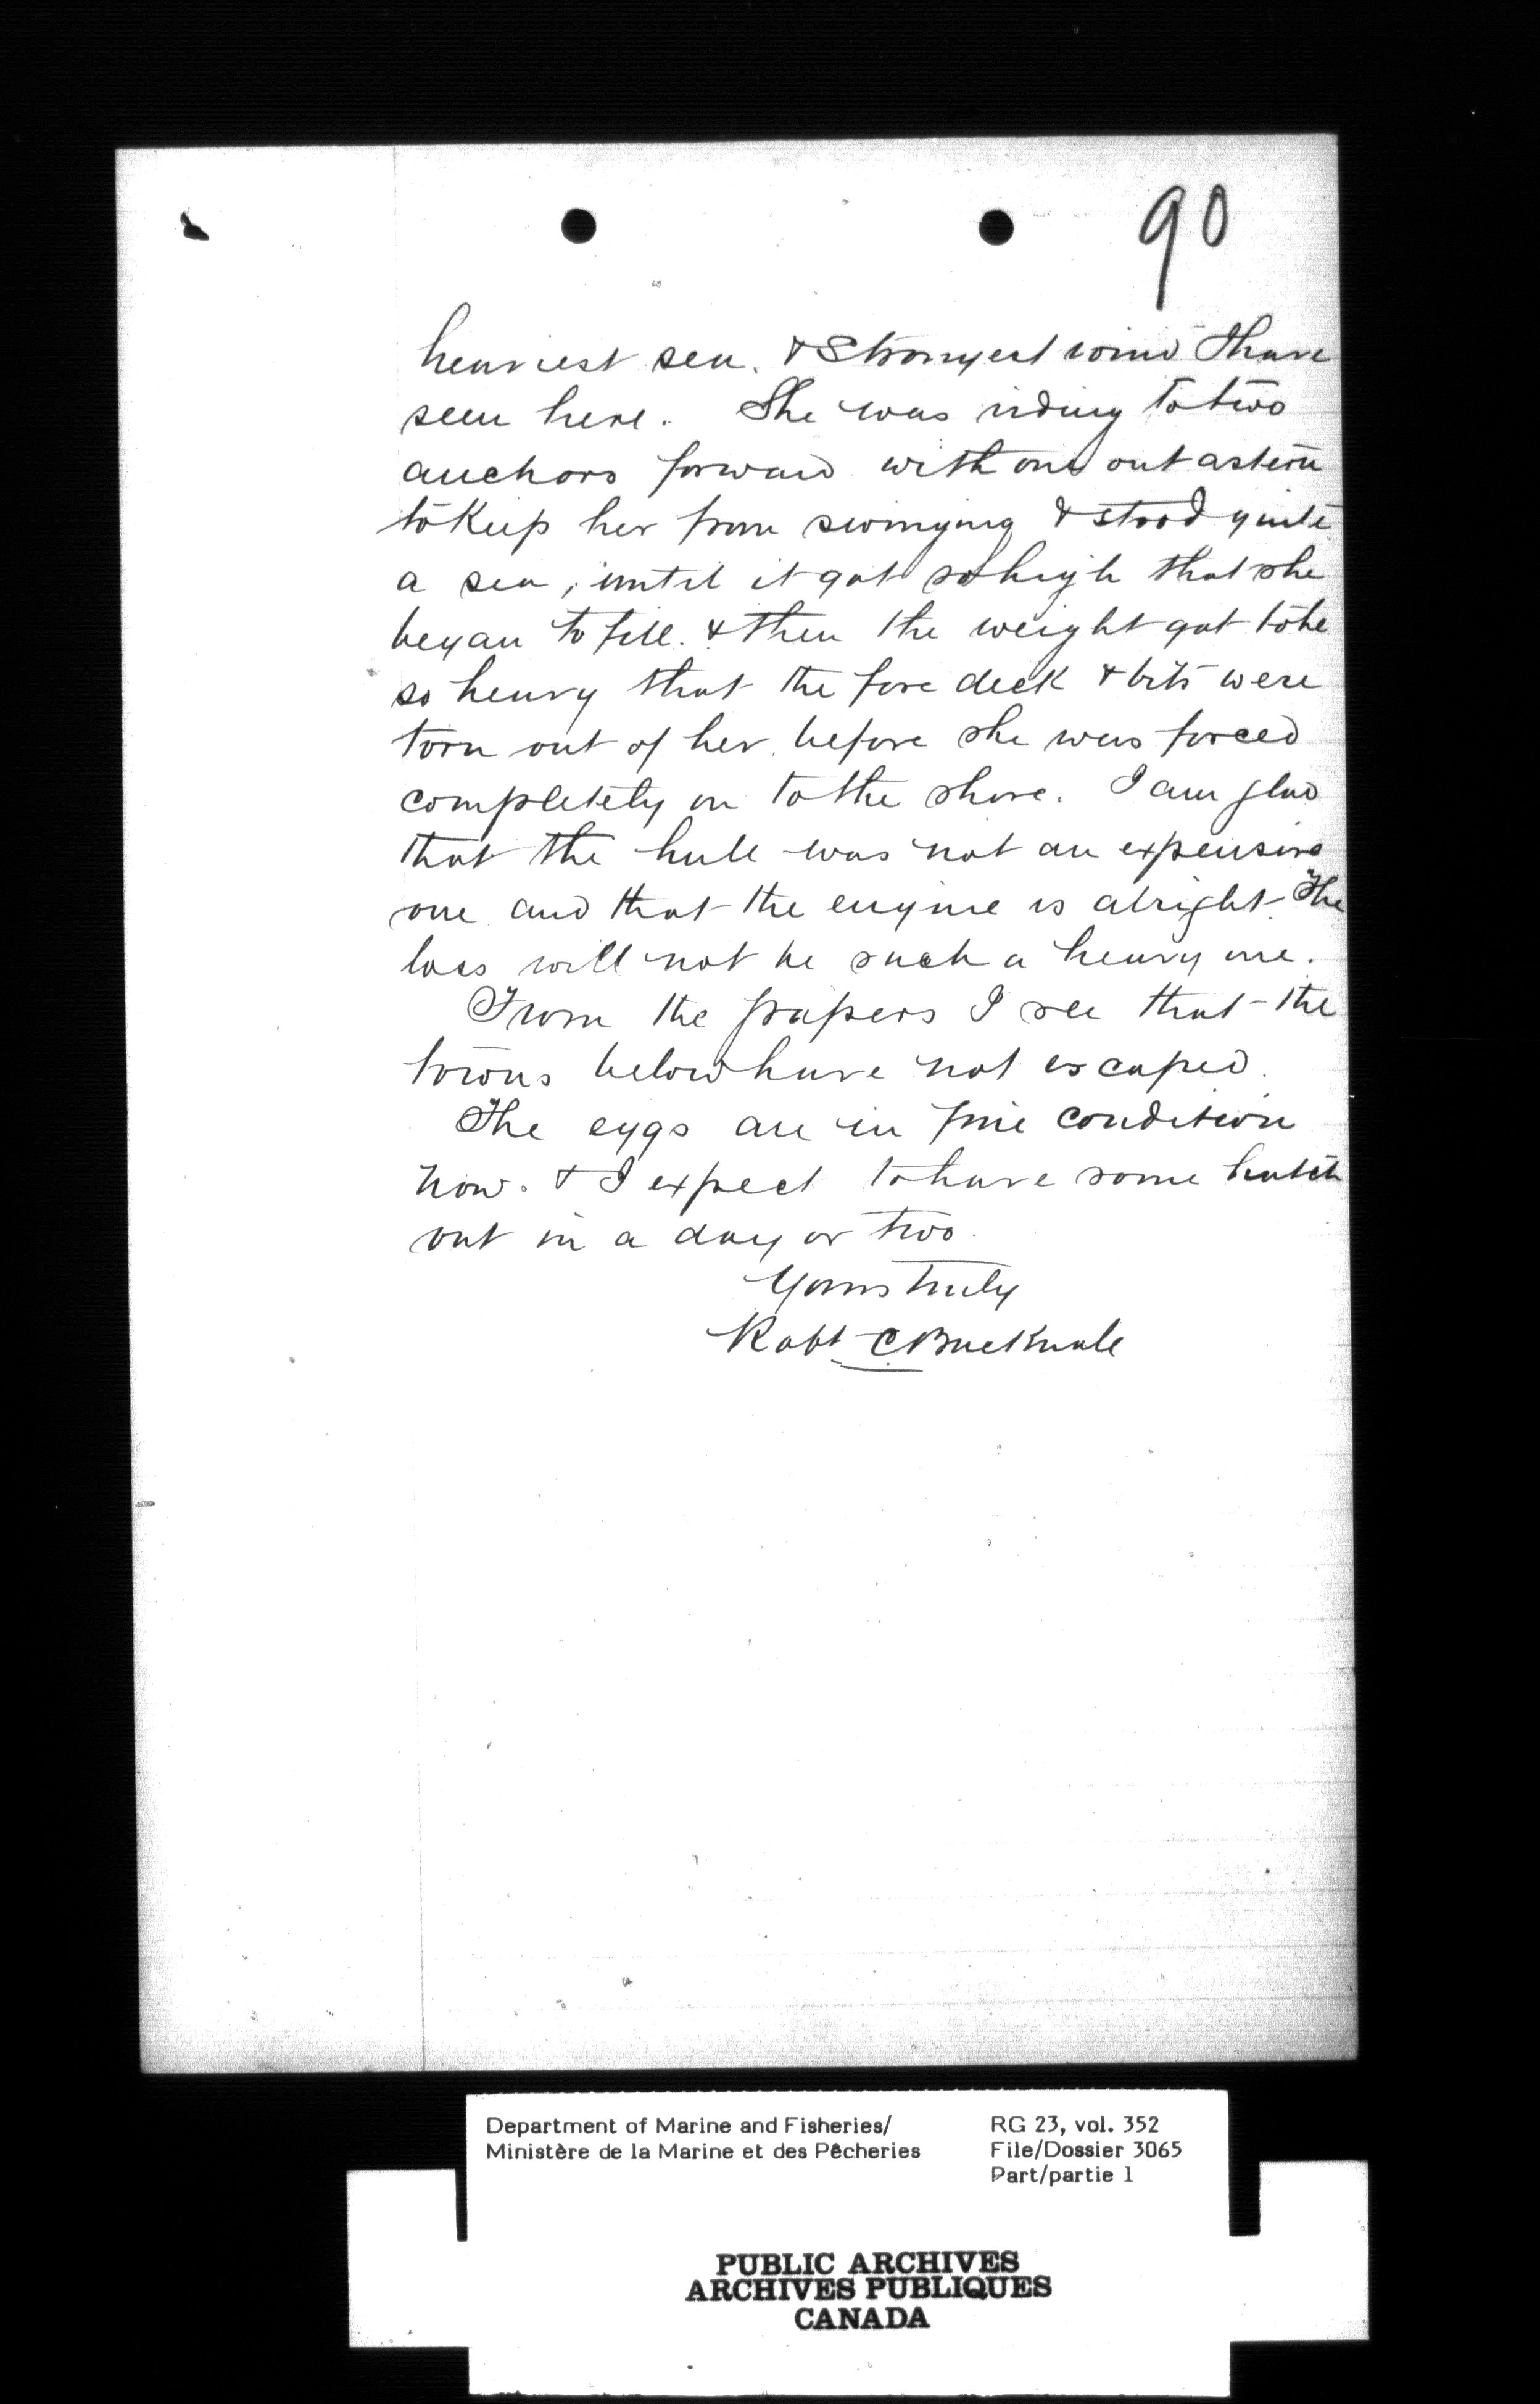 90
heaviest sea. & strongest wind I have
seen here. She was riding to two
anchors forward with one out astern
to keep her from swinging & stood quite
a sea, until it got so high that she
began to fill. & then the weight got to be
so heavy that the fore deck & bits were
torn out of her, before she was forced
completely on to the shore. I am glad
that the hull was not an expensive
one and that the engine is alright. The
loss will not be such a heavy one.
From the papers I see that the
towns below have not escaped.
The eggs are in fine condition
now. & I expect to have some hatch
out in a day or two.
Yours truly
Robt C
Department of Marine and Fisheries/
Ministère de la Marine et des Pêcheries
RG 23, vol. 352
File/Dossier 3065
Part/partie 1
PUBLIC ARCHIVES
ARCHIVES PUBLIQUES
CANADA